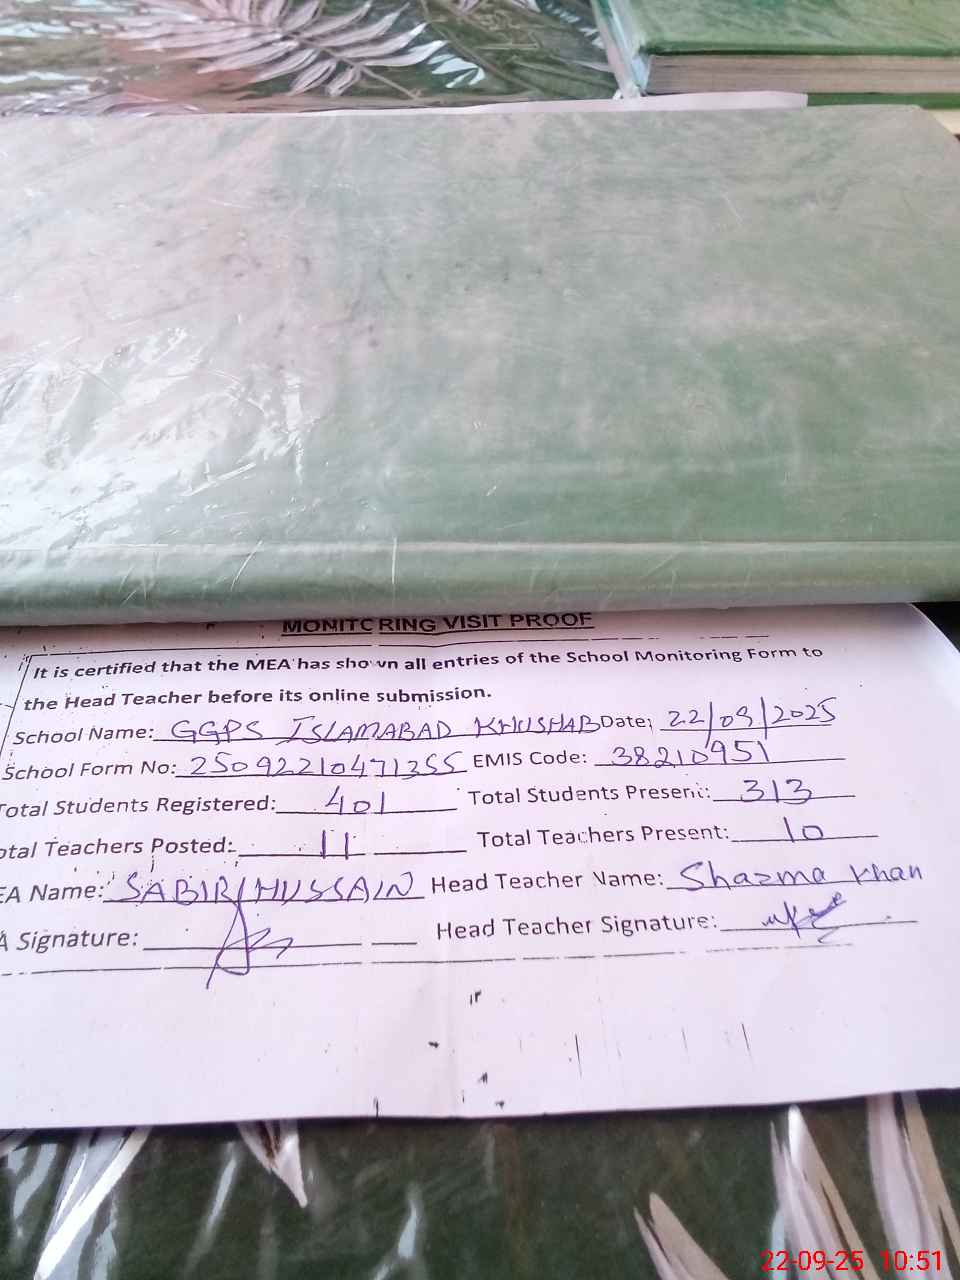 MONITORING VISIT PROOF
It is certified that the MEA has shown all entries of the School Monitoring Form to
the Head Teacher before its online submission.
School Name: GGPS ISLAMABAD KHUSHAB Date: 22/09/2025
School Form No: 25092210471355 EMIS Code: 38210951
Total Students Registered: 401 Total Students Present: 313
otal Teachers Posted: 11 Total Teachers Present: 10
EA Name: SABIR HUSSAIN Head Teacher Name: Shazma Khan
A Signature: Head Teacher Signature:
22-09-25 10:51